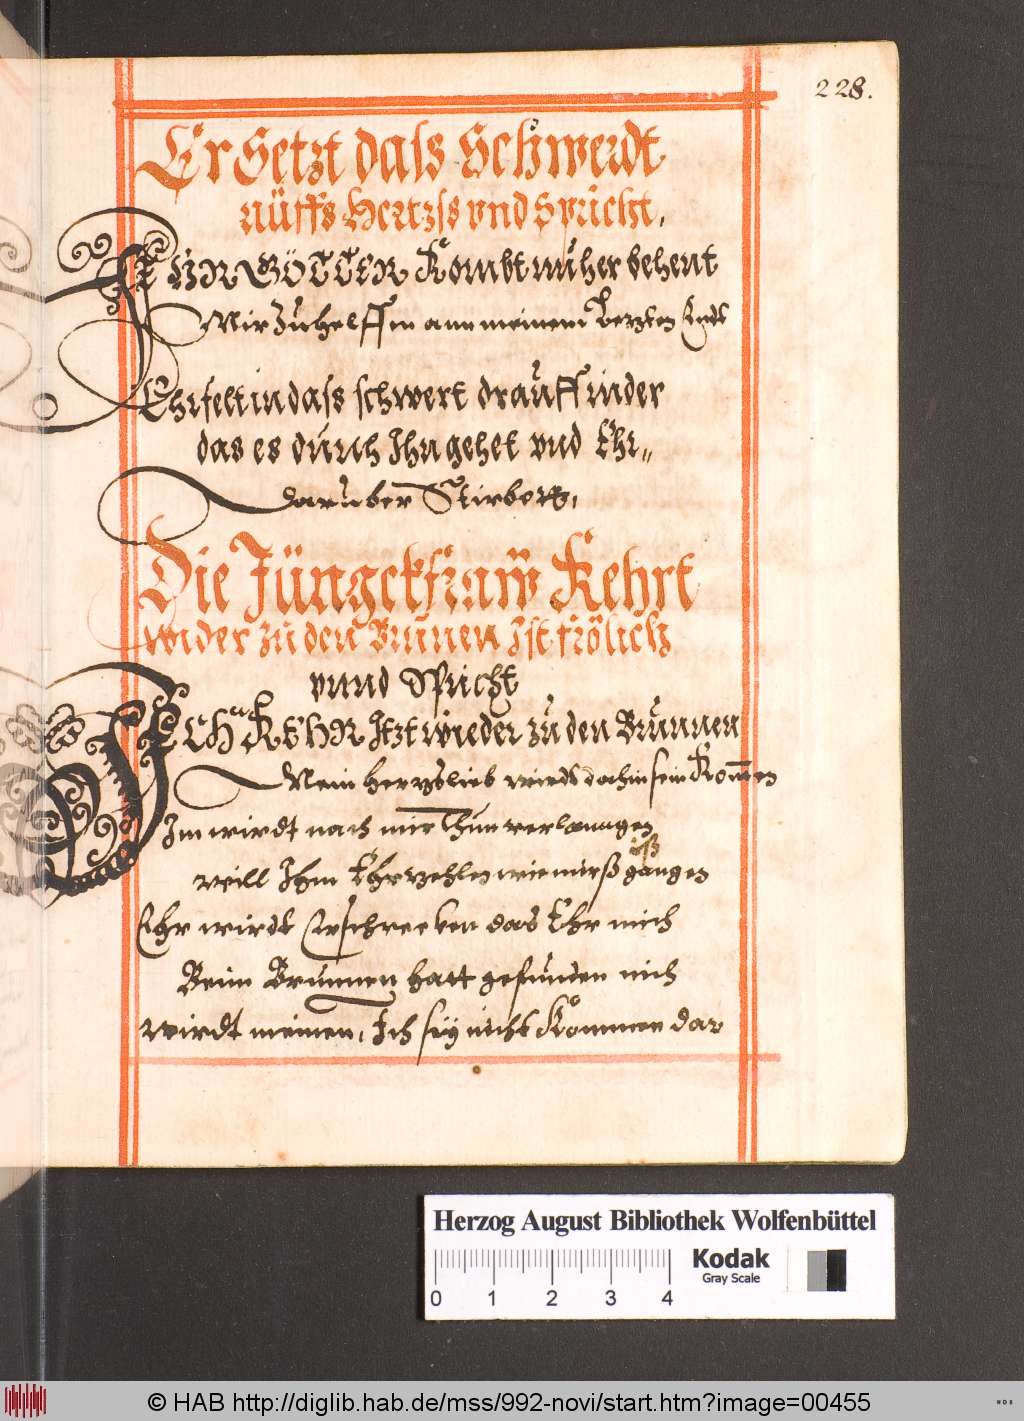 228.
Er Setzt dass Schwerdt
auffs Hertzss vnd Spricht,
IHR GÖTTER Kombt nuh her behent
Mir Zuhelffen ann meinem Letzten Endt
Ehr felt in dass schwert drauff in der
das es durch Ihn gehet vnd Ehr„
daruber Stirbett,
Die Jungckfraw Kehrt
wider zu den Brunen Ist frölich
vnnd Spricht
ICH KEHR Itzt wieder zu den Brunnen
Mein hertzslieb wirdt dahin sein Kommen
Im wirdt nach mir Thun verlanngen
will Ihm Ehrzehlen wie mirß iß gangen
Ehr wirdt Erschrecken das Ehr mich
Beim Brunnen hatt gefunden nich
wirdt meinen, Ich sey nicht Kommen dar
Herzog August Bibliothek Wolfenbüttel
Kodak
Gray Scale
0 1 2 3 4
© HAB http://diglib.hab.de/mss/992-novi/start.htm?image=00455